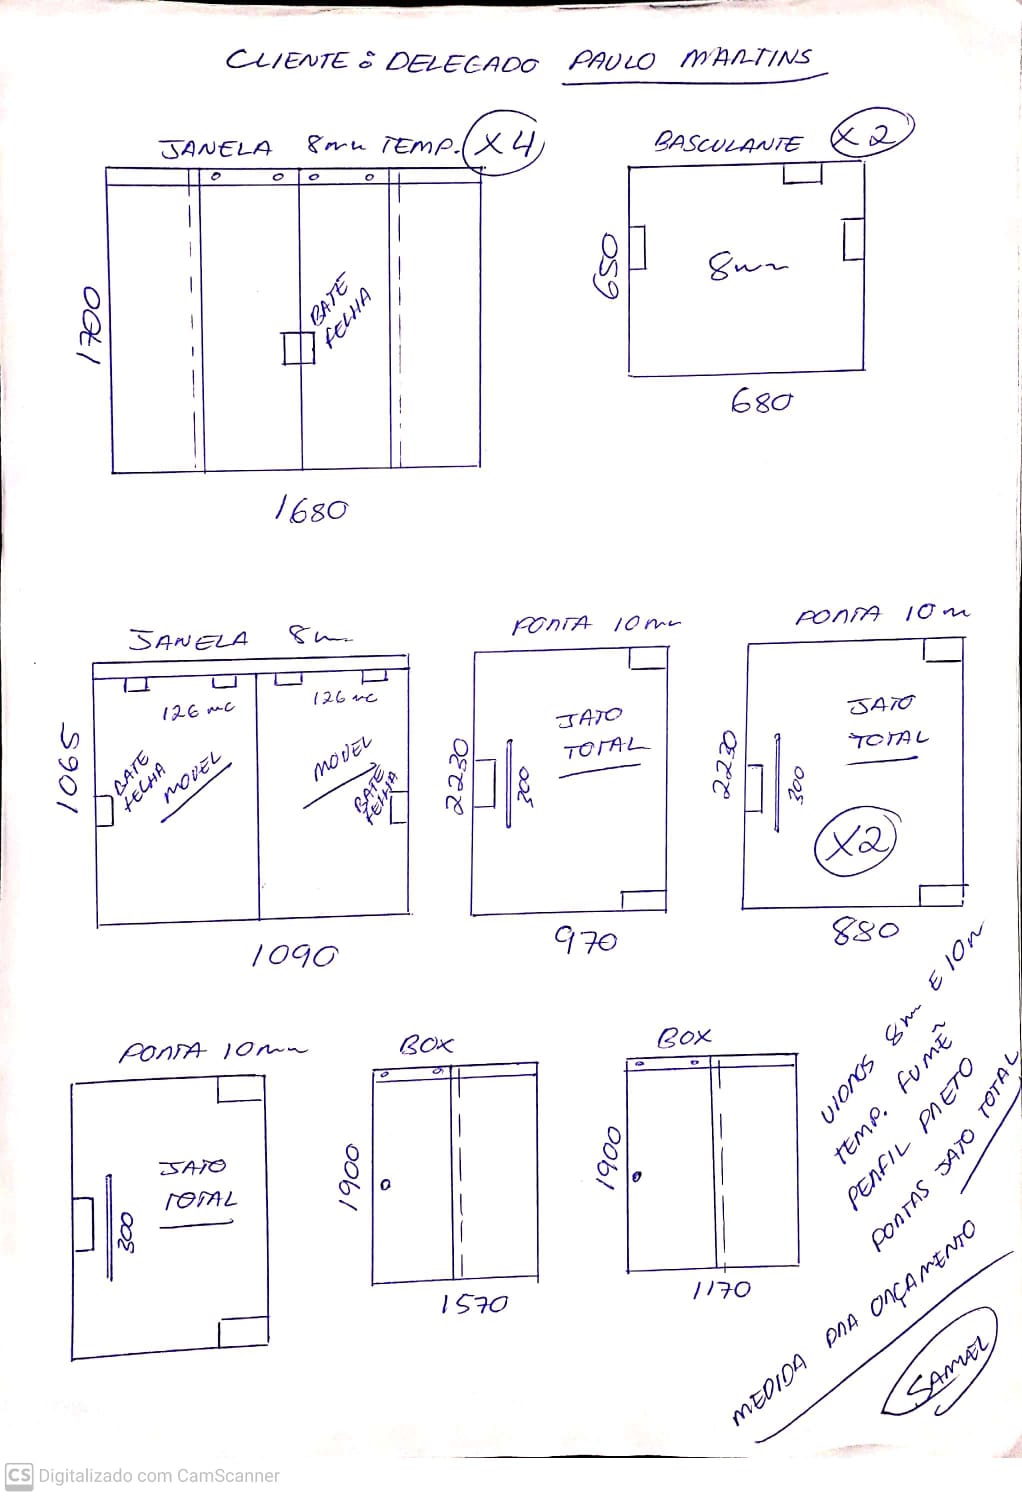 CLIENTE: DELEGADO PAULO MARTINS
JANELA 8mm TEMP. X4
1700
BATE
FECHA
1680
BASCULANTE X2
650
8mm
680
JANELA 8mm
1065
126 mc
126 mc
BATE
FECHA
MOVEL
MOVEL
BATE
FECHA
1090
PORTA 10mm
2230
JATO
TOTAL
300
970
PORTA 10m
2230
JATO
TOTAL
300
X2
880
PORTA 10mm
JATO
TOTAL
300
BOX
1900
1570
BOX
1900
1170
VIDROS 8m E 10m
TEMP. FUMÊ
PERFIL PRETO
PORTAS JATO TOTAL
MEDIDA PRA ORÇAMENTO
SAMAEL
CS Digitalizado com CamScanner